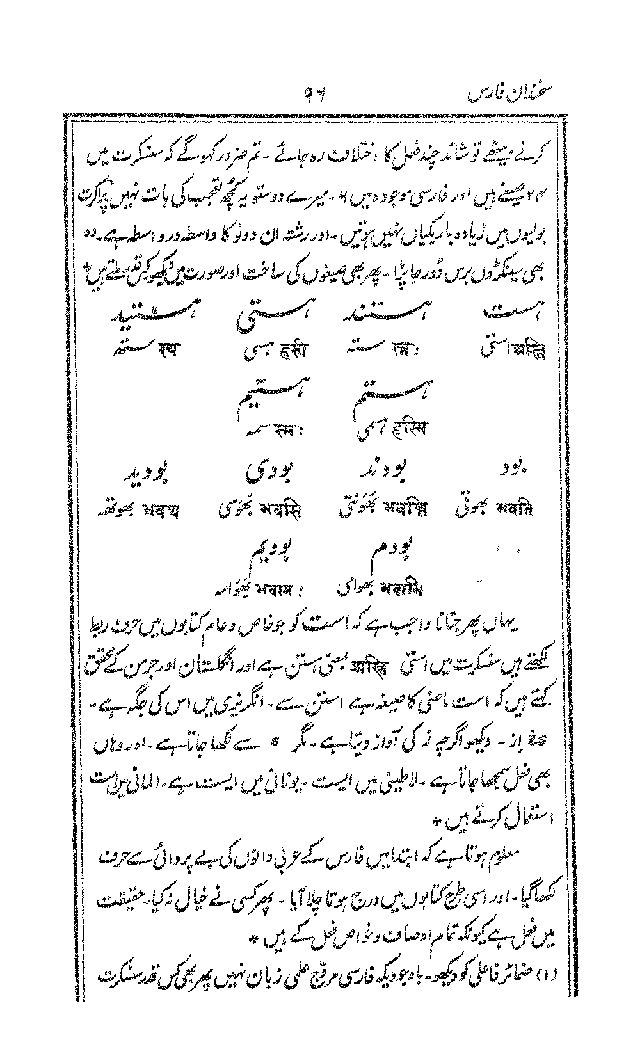 سخندان فارس ۹۶
کرنے بیٹھے تو شائد چند فصل کا اختلاف رہ جائے - تم ضرور کہو گے کہ سنسکرت میں
۲۴ صیغے ہیں اور فارسی موجودہ میں ۶ - میرے دوستو یہ کچھ تعجب کی بات نہیں پراکرت
بولیوں میں زیادہ باریکیاں نہیں ہوتیں - اور رشتہ ان دونو کا واسطہ در واسطہ ہے - وہ
بھی سینکڑوں برس دُور جا پڑا - پھر بھی صیغوں کی ساخت اور صورت میں دیکھو کیس قدر ملتے ہیں *
ہست ہستند ہستی ہستید
अस्ति استی स्तः ستہ हसी ہسی स्थ ستھہ
ہستم ہستیم
हस्मि ہسمی स्मः سمہ
بود بودند بودی بودید
भवति بھوتی भवन्ति بھَوَنتی भवसि بھَوَسی भवथ بھوتھہ
بودم بودیم
भवामि بھوامی भवामः بھَوامہ
یہاں پھر جتانا واجب ہے کہ است کو جو خاص و عام کتابوں میں حرف ربط
لکھتے ہیں سنسکرت میں استی अस्ति بمعنی ہستن ہے اور انگلستان اور جرمن کے محقق
کہتے ہیں کہ است ماضی کا صیغہ ہے استن سے - انگریزی میں اس کی جگہ ہے -
از - دیکھو اگرچہ ز کی آواز دیتا ہے - مگر s سے لکھا جاتا ہے - اور وہاں
بھی فعل سمجھا جاتا ہے - لاطینی میں ایست - یونانی میں ایست ہے - المانی میں است
استعمال کرتے ہیں *
معلوم ہوتا ہے کہ ابتدا میں فارس کے عربی دانوں کی بے پروائی سے حرف
لکھا گیا - اور اسی طرح کتابوں میں درج ہوتا چلا آیا - پھر کسی نے خیال نہ کیا - حقیقت
میں فعل ہے کیونکہ تمام اوصاف و خواص فعل کے ہیں *
(۱) ضمائر فاعلی کو دیکھو - باوجودیکہ فارسی مروج علمی زبان نہیں پھر بھی کس قدر سنسکرت